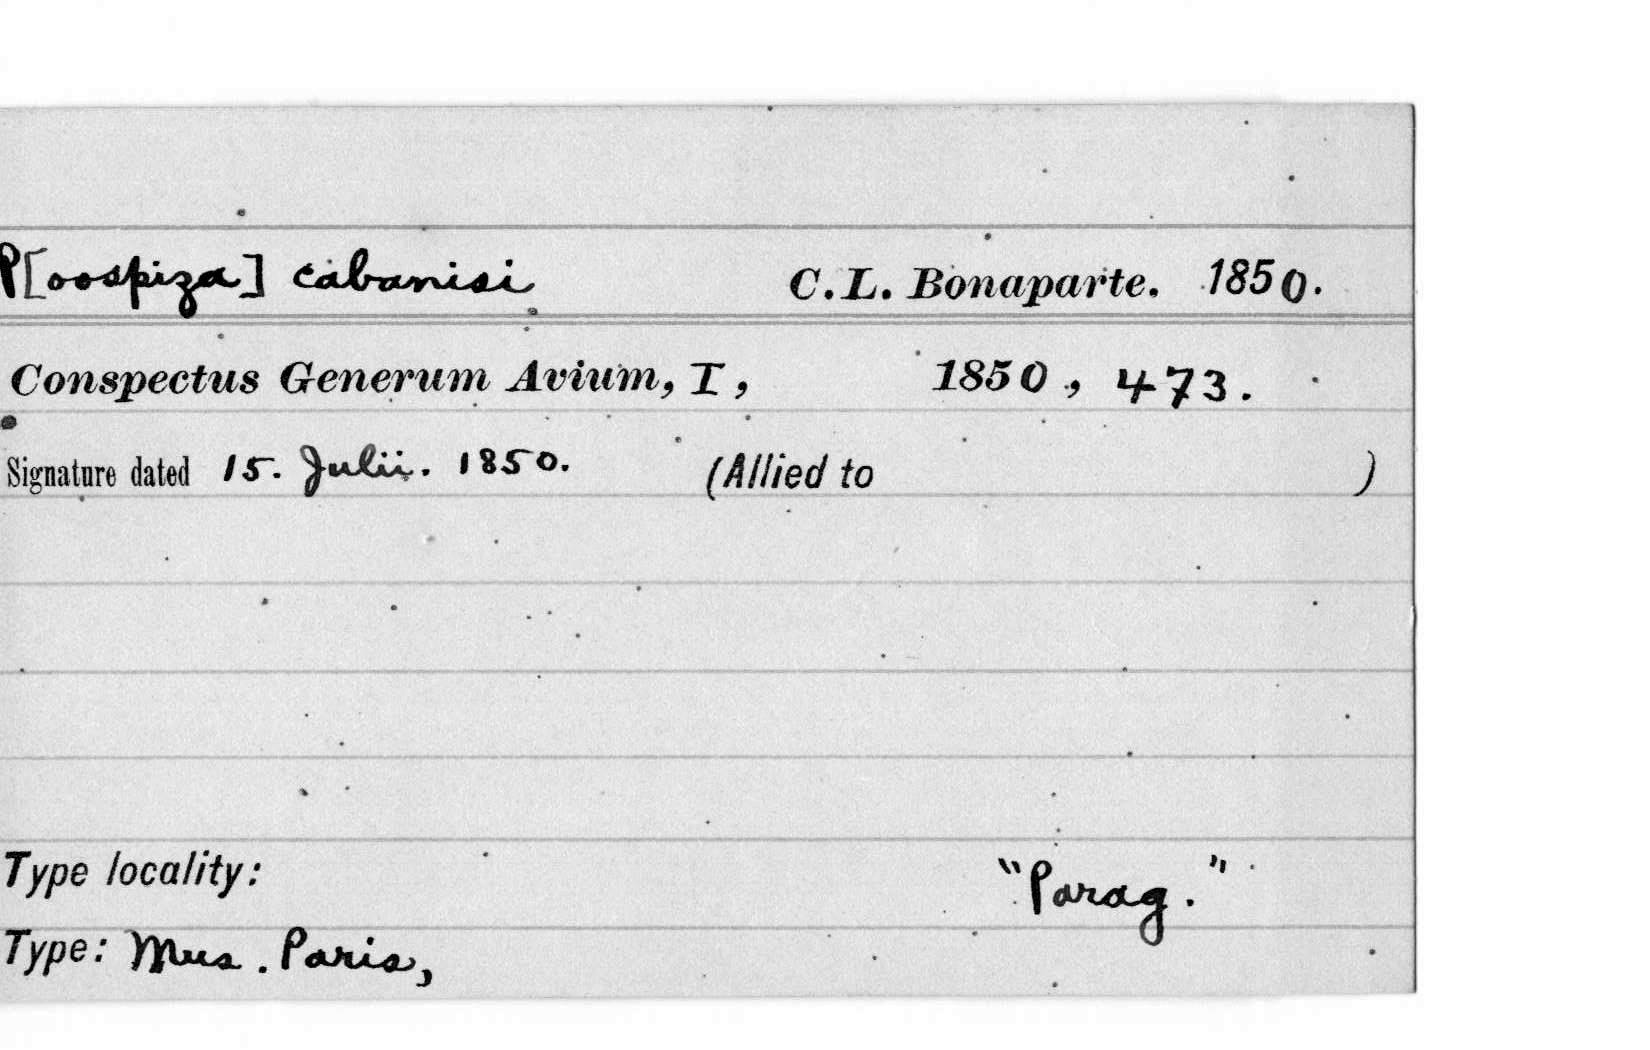 P[oospiza] cabanisi C.L. Bonaparte. 1850.
Conspectus Generum Avium, I, 1850, 473.
Signature dated 15. Julii. 1850. (Allied to )
Type locality: "Parag."
Type: Mus. Paris,